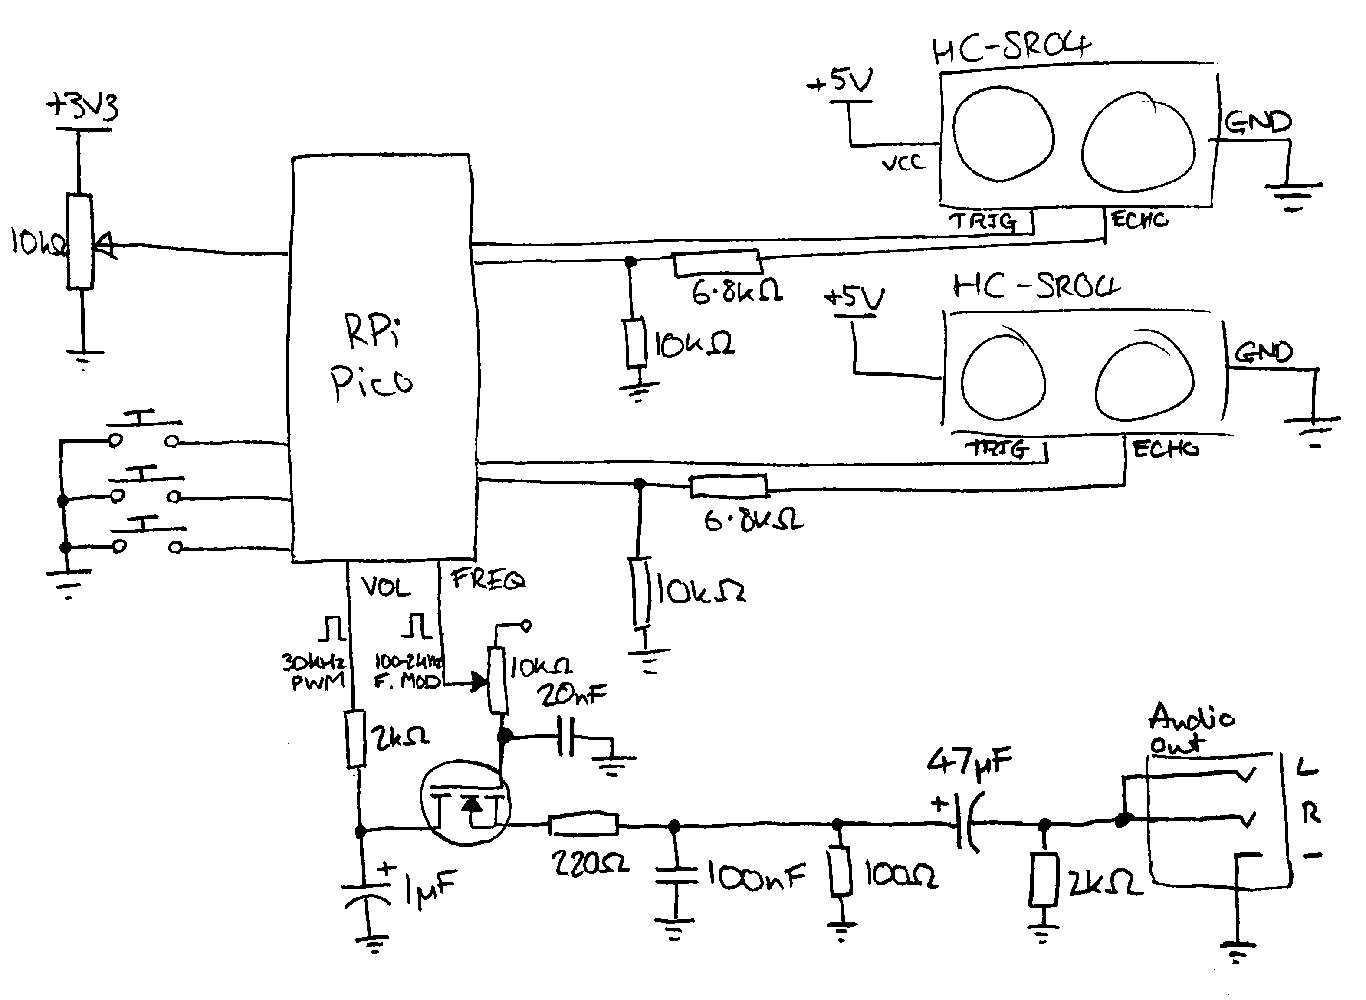 HC-SR04
+5V
VCC
GND
TRIG
ECHO
+3V3
10kΩ
RPi
Pico
6.8kΩ
10kΩ
HC-SR04
+5V
GND
TRIG
ECHO
6.8kΩ
10kΩ
VOL
FREQ
30kHz
PWM
100-2kHz
F. MOD
10kΩ
20nF
2kΩ
1µF
+
220Ω
100nF
100Ω
47µF
+
2kΩ
Audio
out
L
R
-